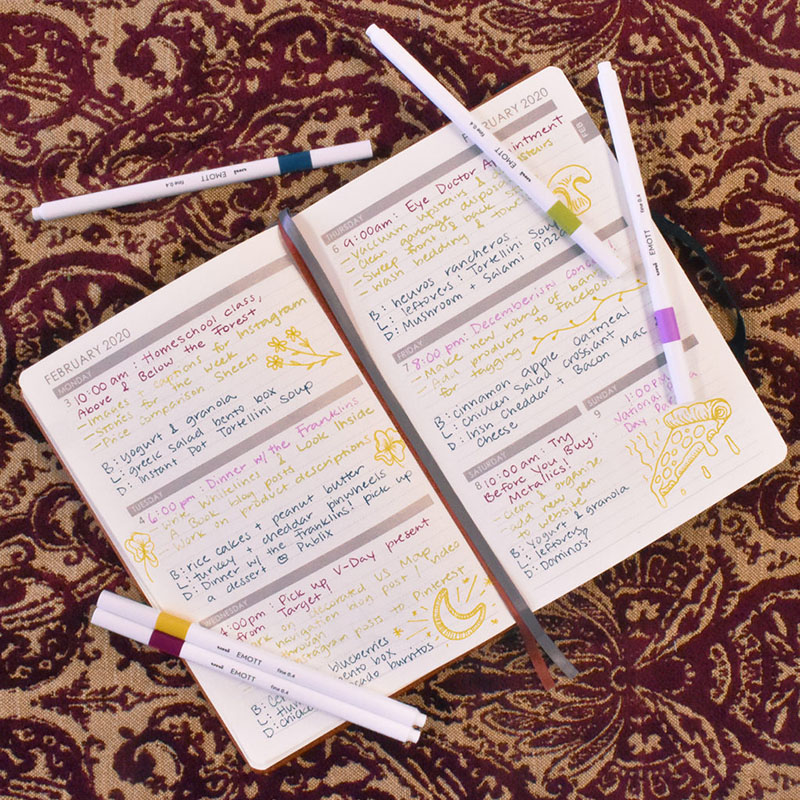 FEBRUARY 2020
MONDAY
3 10:00 am: Homeschool class,
Above & Below the Forest
- Images & captions for Instagram
- Stories for the week
- Price Comparison Sheets
B: yogurt & granola
L: greek salad bento box
D: Instant Pot Tortellini Soup
TUESDAY
4 6:00 pm: Dinner w/ the Franklins
Whitelines & Look Inside
A Book blog posts
- Work on product descriptions
B: rice cakes + peanut butter
L: turkey + cheddar pinwheels
D: Dinner w/ the Franklins! pick up
a dessert @ Publix
WEDNESDAY
4:00pm: Pick up V-Day present
from Target!
on decorated US Map
navigation blog post / video
through
Instagram posts to Pinterest
blueberries
bento box
D: burritos
FEBRUARY 2020
FEB
THURSDAY
6 9:00am: Eye Doctor Appointment
- Vacuum upstairs &
- Clean garbage disposal
- Sweep front & back
- Wash bedding &
B: heuvos rancheros
L: leftovers: Tortellini Soup
D: Mushroom + Salami Pizza
FRIDAY
7 8:00 pm: Decemberists
- Make new round of
- Add products to Facebook
for tagging
B: cinnamon apple oatmeal
L: chicken salad crossiant
D: Irish Cheddar + Bacon Mac
cheese
SATURDAY
8 10:00 am: Try
Before You Buy:
Metallics!
- clean & organize
- add new pen
to website
B: Yogurt & granola
L: leftovers
D: Dominos!
SUNDAY
9
1:00
National
Day
uni EMOTT fine 0.4
uni EMOTT fine 0.4
uni EMOTT
uni EMOTT fine 0.4
uni EMOTT fine 0.4